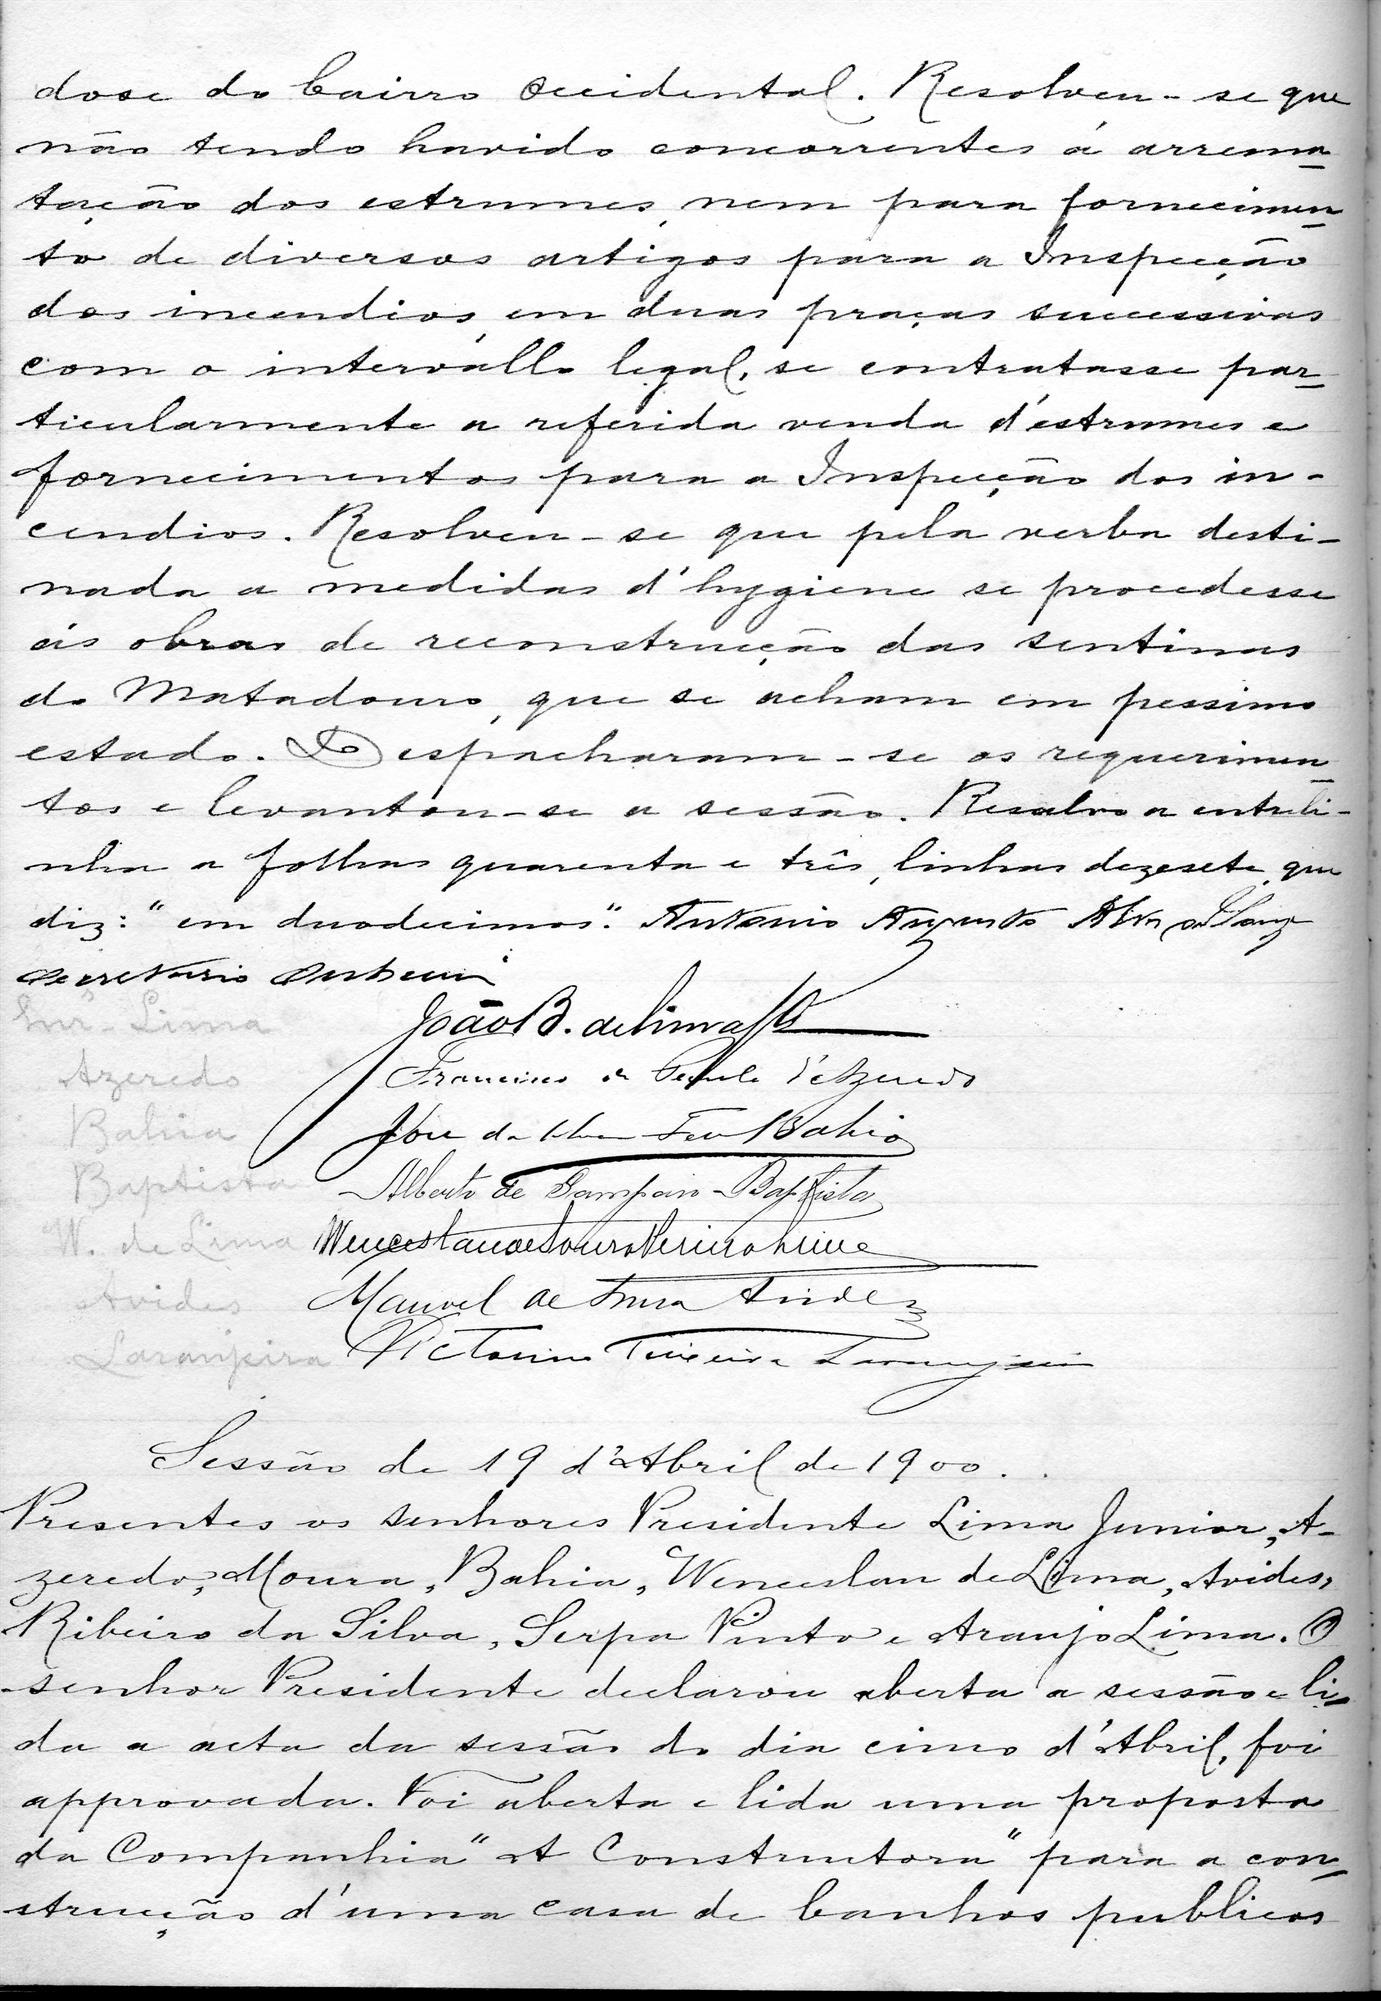 dose do bairro occidental. Resolveu-se que
não tendo havido concorrentes á arrema-
tação dos estrumes, nem para fornecimen-
to de diversos artigos para a Inspecção
dos incendios, em duas praças successivas
com o intervallo legal, se contratasse par-
ticularmente a referida venda d'estrumes e
fornecimentos para a Inspecção dos in-
cendios. Resolveu-se que pela verba desti-
nada a medidas d'hygiene se procedesse
ás obras de reconstrucção das sentinas
do Matadouro, que se acham em pessimo
estado. Despacharam-se os requerimen-
tos e levantou-se a sessão. Resalvo a entreli-
nha a folhas quarenta e três, linhas dezesete, que
diz: "em duodecimos". Antonio Augusto Alves de Souza
secretario subscrevi
Lima
João B. de Lima Jor
Azeredo
Francisco de Paula d'Azeredo
Bahia
José da Silva Bahia
Baptista
Alberto de Sampaio Baptista
W. de Lima
Wenceslau de Sousa Pereira Lima
Avides
Manoel de Avides
Laranjeira
Victorino Teixeira Laranjeira
Sessão de 19 d'Abril de 1900.
Presentes os senhores Presidente Lima Junior, A-
zeredo, Moura, Bahia, Wenceslau de Lima, Avides,
Ribeiro da Silva, Serpa Pinto e Araujo Lima. O
senhor Presidente declarou aberta a sessão e li-
da a acta da sessão do dia cinco d'Abril, foi
approvada. Foi aberta e lida uma proposta
da Companhia "A Constructora" para a con-
strucção d'uma casa de banhos publicos